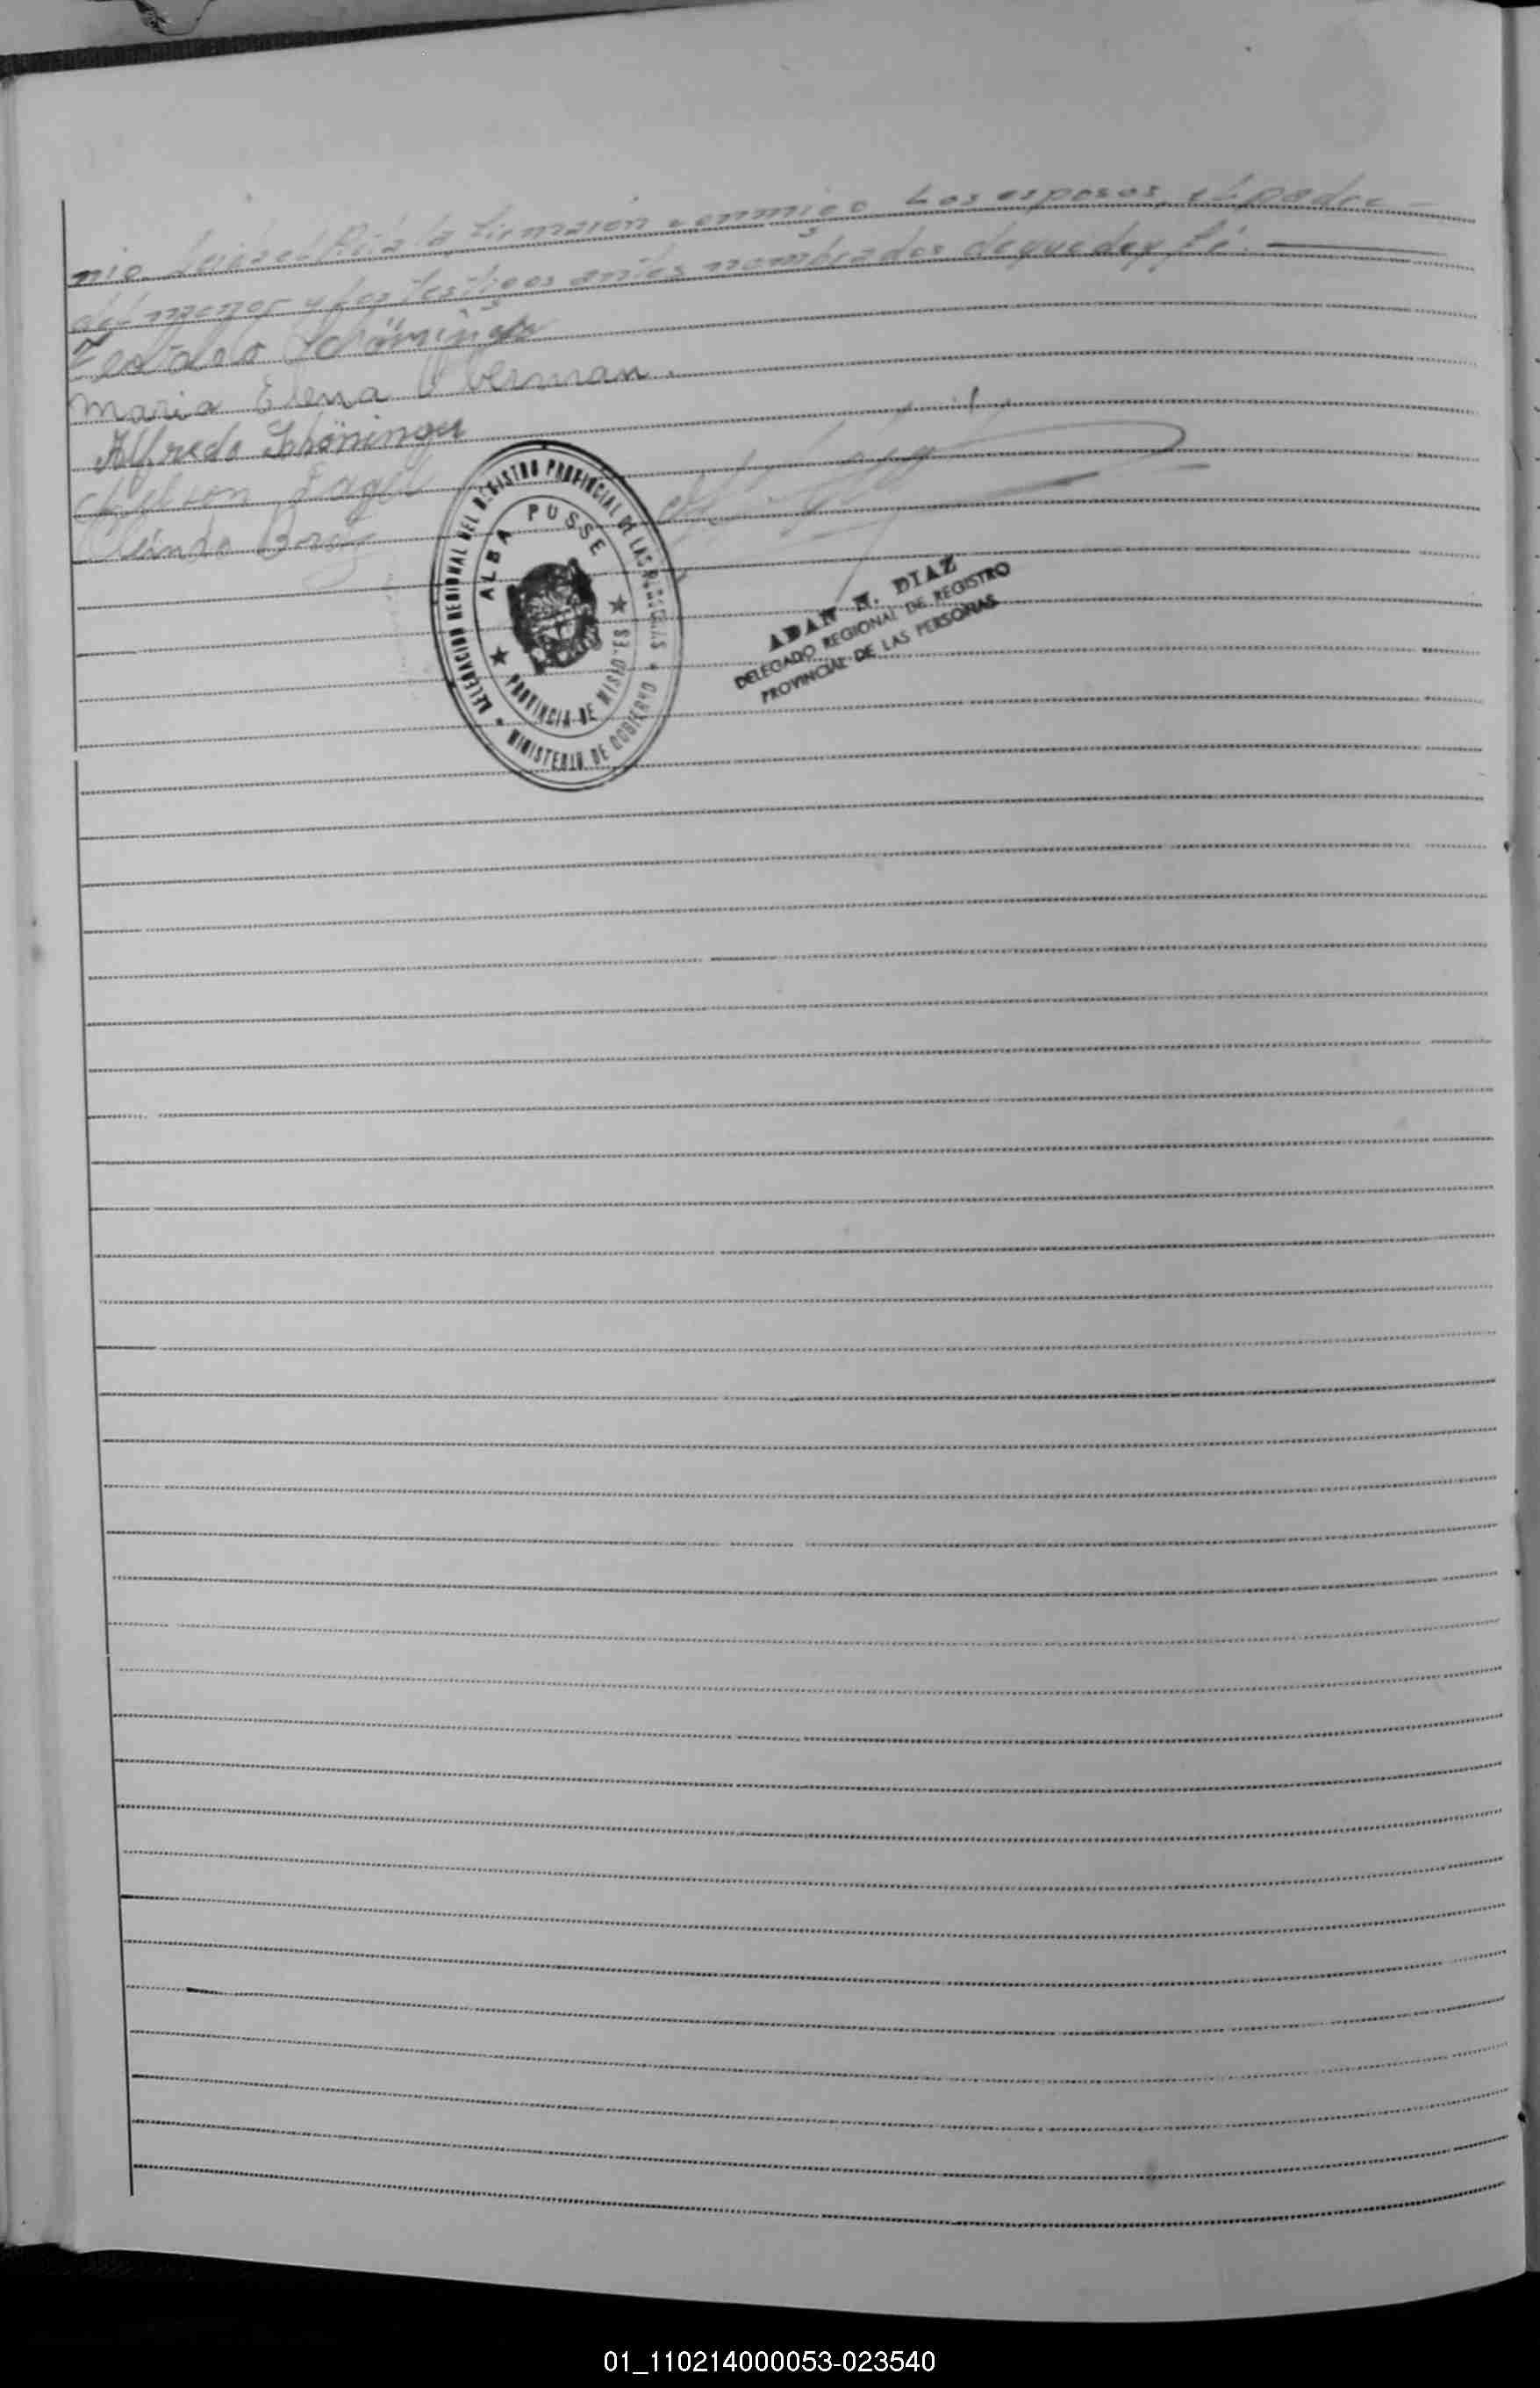 nio. Leida el Acta la, firmaron conmigo Los esposos, el padre
del menor y los testigos antes nombrados de que doy fé.
Schöninger
Maria Elena Oberman.
Alfredo Schöninger
Nelson Pagel
DELEGACION REGIONAL DEL REGISTRO PROVINCIAL DE LAS PERSONAS
ALBA PUSSE
PROVINCIA DE MISIONES
MINISTERIO DE GOBIERNO
ADAN N. DIAZ
DELEGADO REGIONAL DE REGISTRO
PROVINCIAL DE LAS PERSONAS
01_110214000053-023540